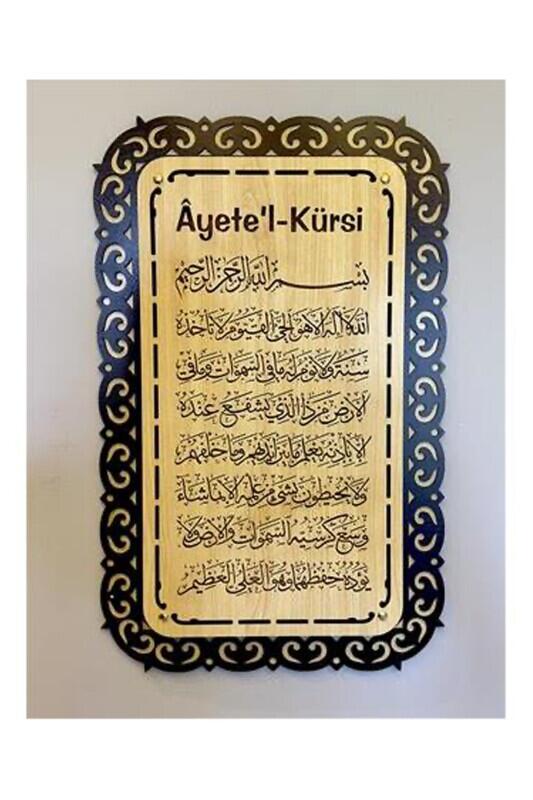 Âyete'l-Kürsi
بسم الله الرحمن الرحيم
الله لا اله الا هو الحي القيوم لا تأخذه
سنة ولا نوم له ما في السموات وما في
الارض من ذا الذي يشفع عنده
الا باذنه يعلم ما بين ايديهم وما خلفهم
ولا يحيطون بشئ من علمه الا بما شاء
وسع كرسيه السموات والارض ولا
يؤده حفظهما وهو العلي العظيم